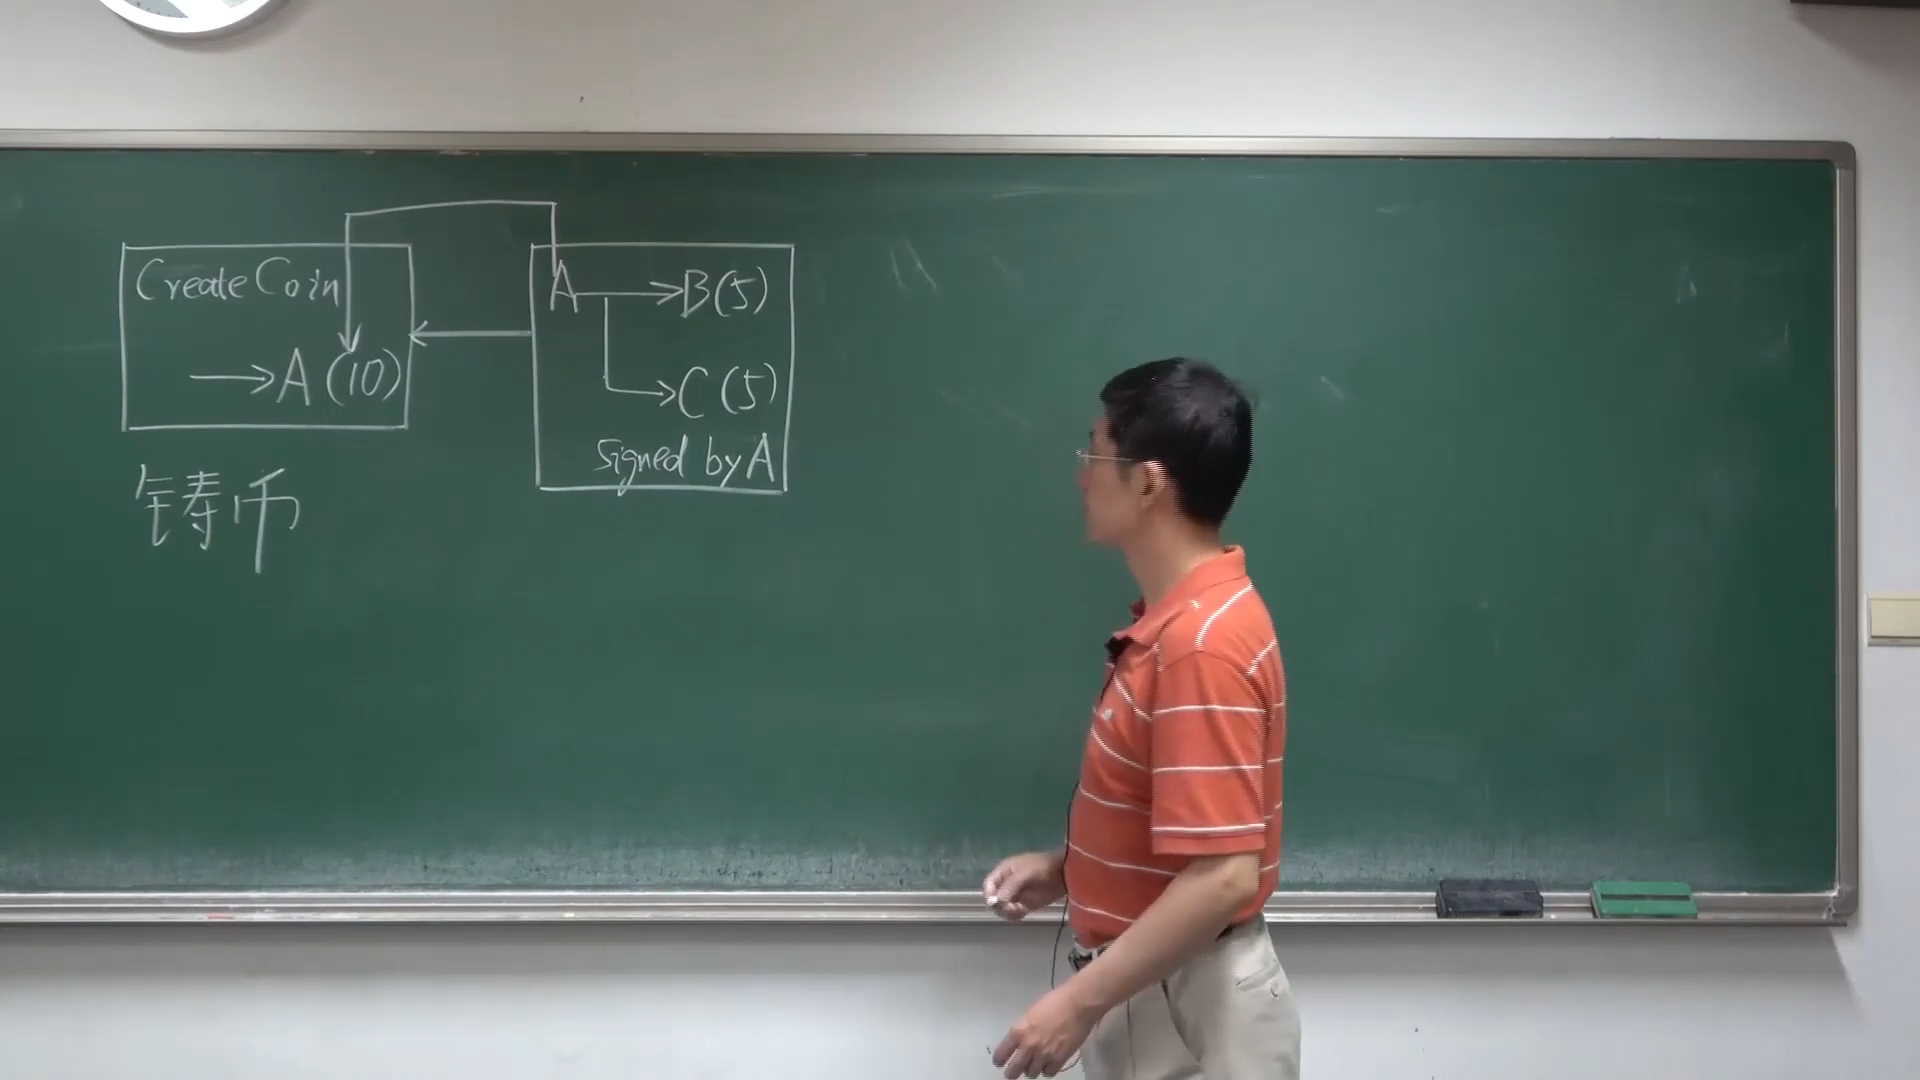 CreateCoin
→A(10)
铸币
A→B(5)
→C(5)
signed by A